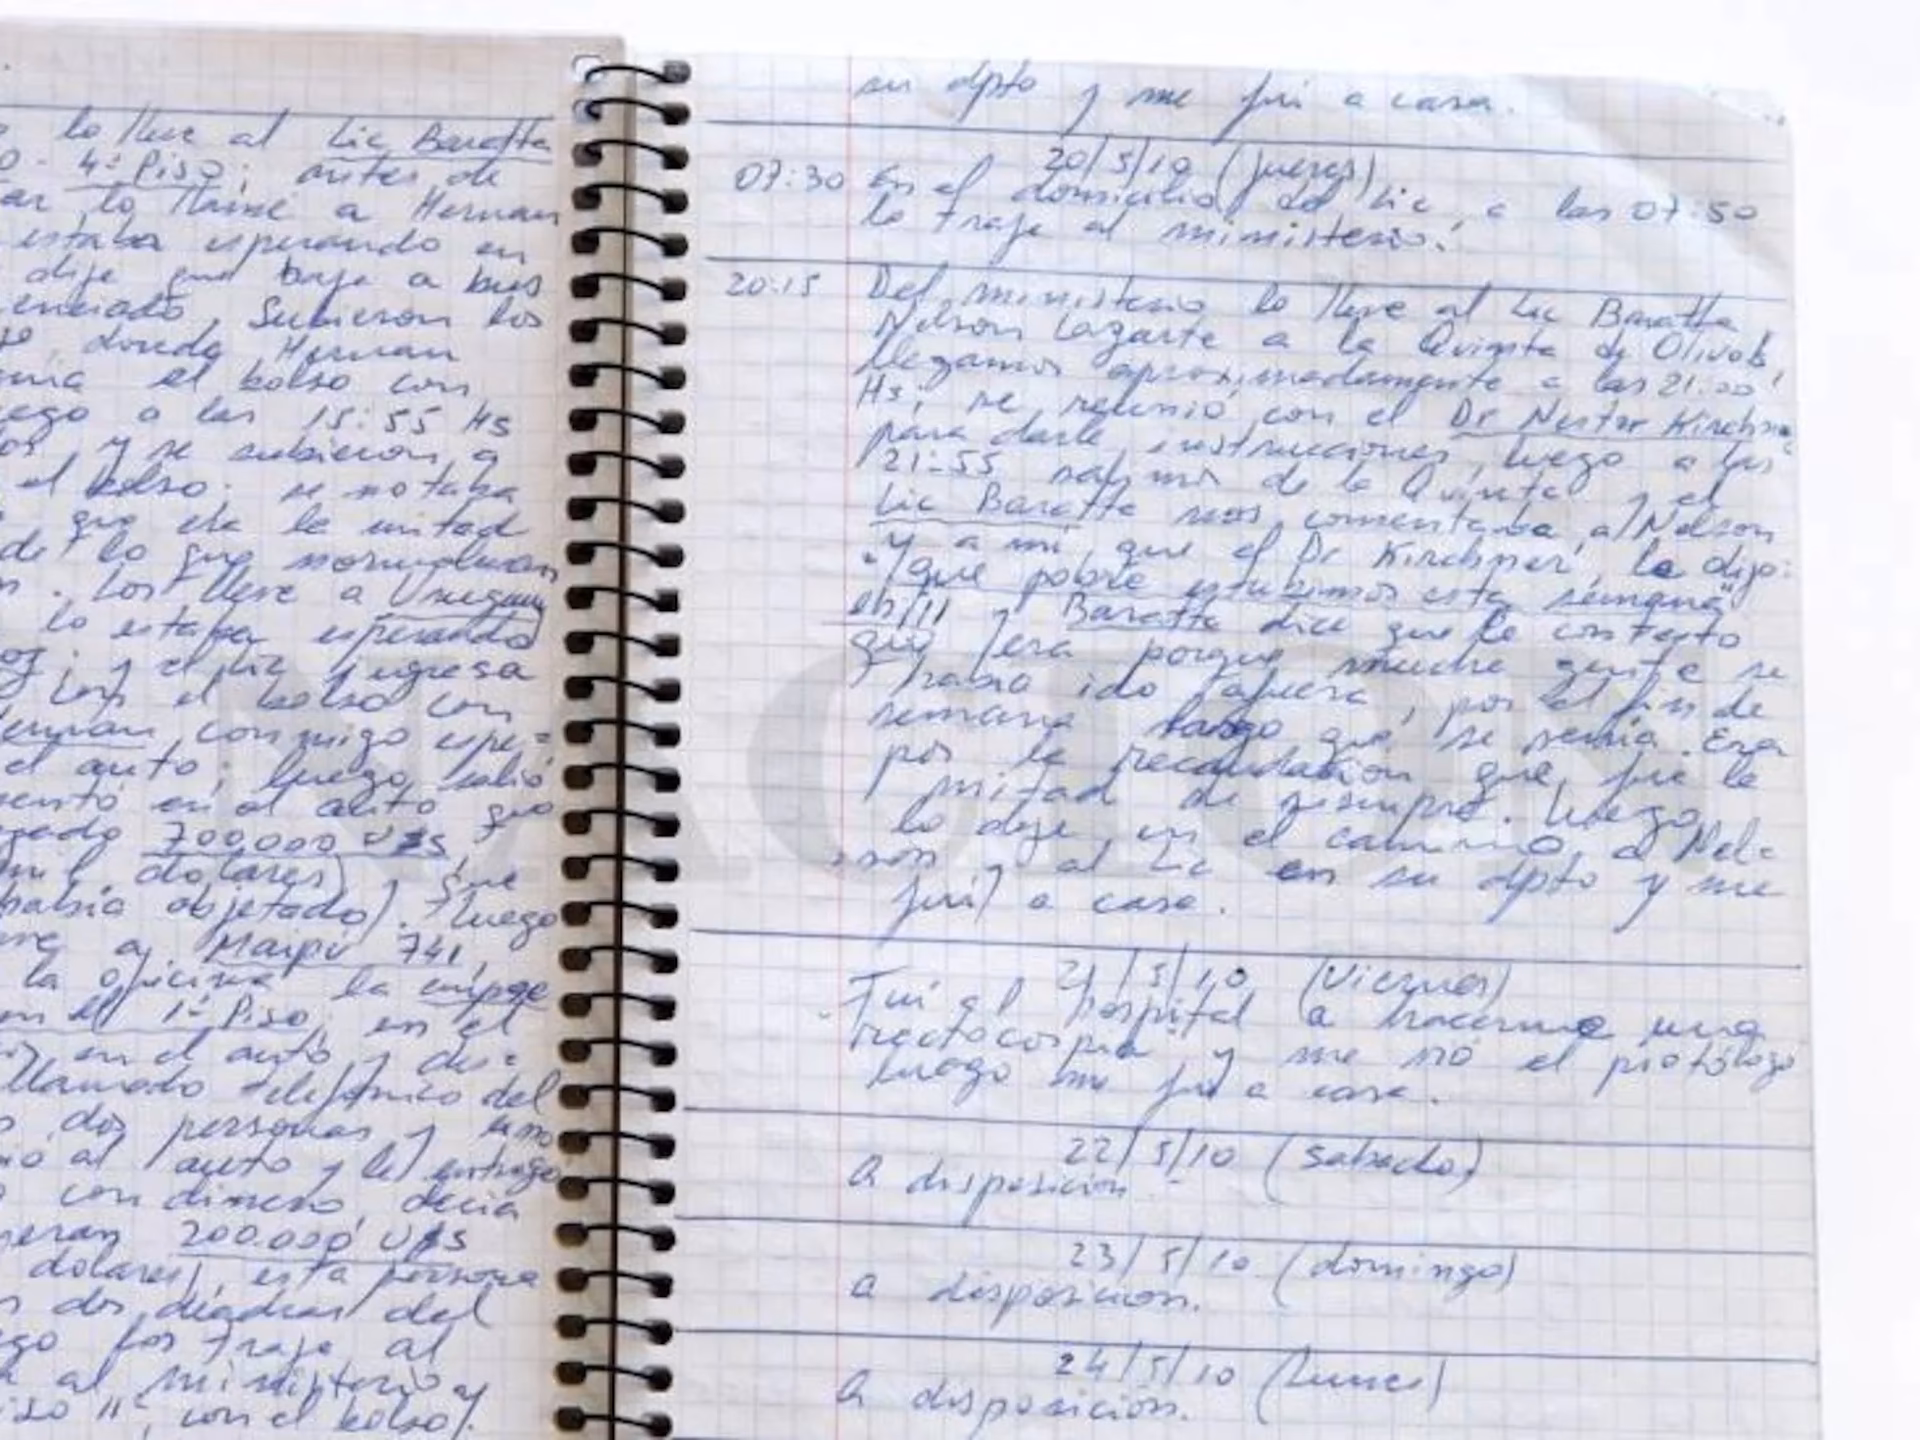 lo lleve al Lic Baratta
4º Piso; antes de
lo llamé a Hernan
estaba esperando en
dije que baje a bus
enciado, Subieron los
donde Hernan
el bolso con
a las 15:55 Hs
y se subieron a
el bolso; se notaba
que era la mitad
de lo que normalmen
. Los lleve a Uruguay
lo estaba esperando
; y el Lic ingresa
con el bolso con
Hernan conmigo espe=
el auto; luego salió
en el auto que
700.000 U$S,
mil dolares) y que
habia objetado). Luego
a Maipú 741,
la oficina la
en el 1º Piso; en el
en el auto y des=
llamado telefonico del
dos personas y uno
al auto y le entrego
con dinero, decia
eran 200.000 U$S
dolares), esta persona
dos del
los traje al
al ministerio y
11º, con el bolso).
su dpto y me fui a casa.
20/5/10 (jueves)
07:30 En el domicilio del Lic, a las 07:50
lo traje al ministerio.
20:15 Del ministerio lo lleve al Lic Baratta
Nelson Lazarte a la Quinta de Olivos,
llegamos aproximadamente a las 21:20
Hs; se reunió con el Dr Nestor Kirchner
para darle instrucciones, luego a las
21:55 salimos de la Quinta y el
Lic Baratta nos comentaba, a Nelson
y a mi, que el Dr Kirchner, le dijo:
"que pobre estubimos esta semana"
eh/// y Baratta dice que le contesto
que era porque mucha gente se
habia ido afuera, por el fin de
semana largo que se venia. Era
por la recaudación que fue la
mitad de siempre. Luego
lo deje en el camino a Nel=
son y al Lic en su dpto y me
fui a casa.
21/5/10 (Viernes)
Fui al hospital a hacerme una
rectocospia y me vió el protólogo
luego me fui a casa.
22/5/10 (sabado)
A disposicion.-
23/5/10 (domingo)
a disposicion.
24/5/10 (Lunes)
A disposición.
NACION